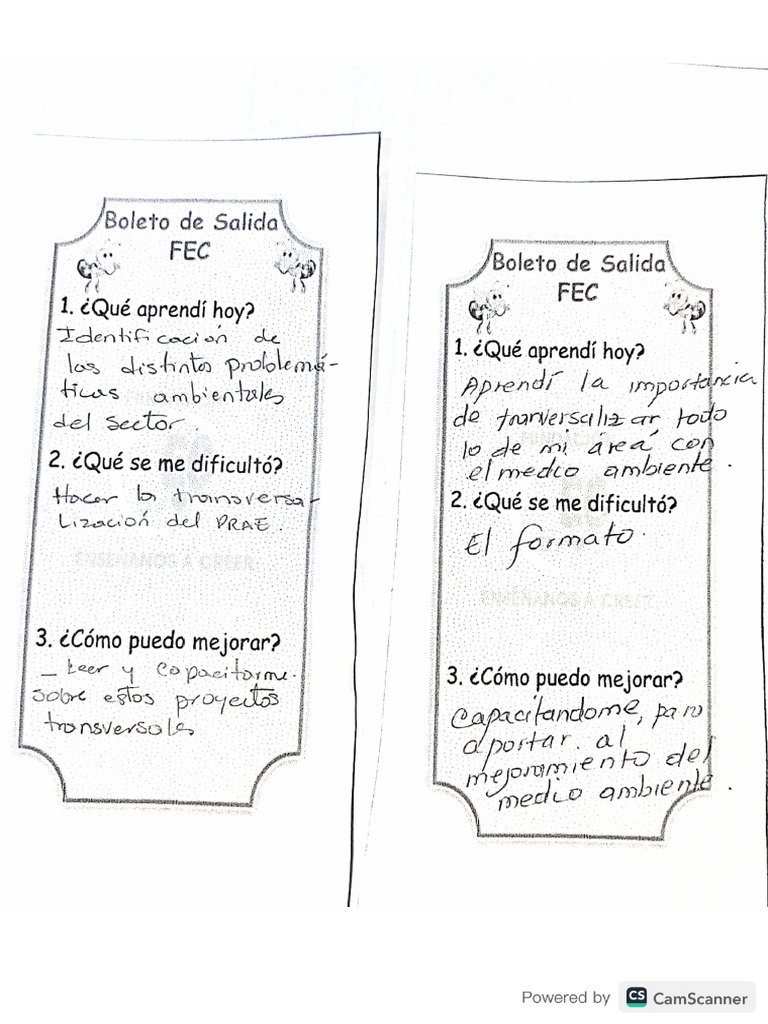 Boleto de Salida
FEC
1. ¿Qué aprendí hoy?
Identificación de
las distintas problemá-
ticas ambientales
del sector.
2. ¿Qué se me dificultó?
Hacer la transversa-
lización del PRAE.
ENSEÑANOS A CREER
3. ¿Cómo puedo mejorar?
_ Leer y capacitarme.
sobre estos proyectos
transversales
Boleto de Salida
FEC
1. ¿Qué aprendí hoy?
Aprendí la importancia
de tranversalizar todo
lo de mi área con
el medio ambiente.
2. ¿Qué se me dificultó?
El formato.
ENSEÑANOS A CREER
3. ¿Cómo puedo mejorar?
Capacitandome, para
aportar. al
mejoramiento del
medio ambiente.
Powered by CS CamScanner